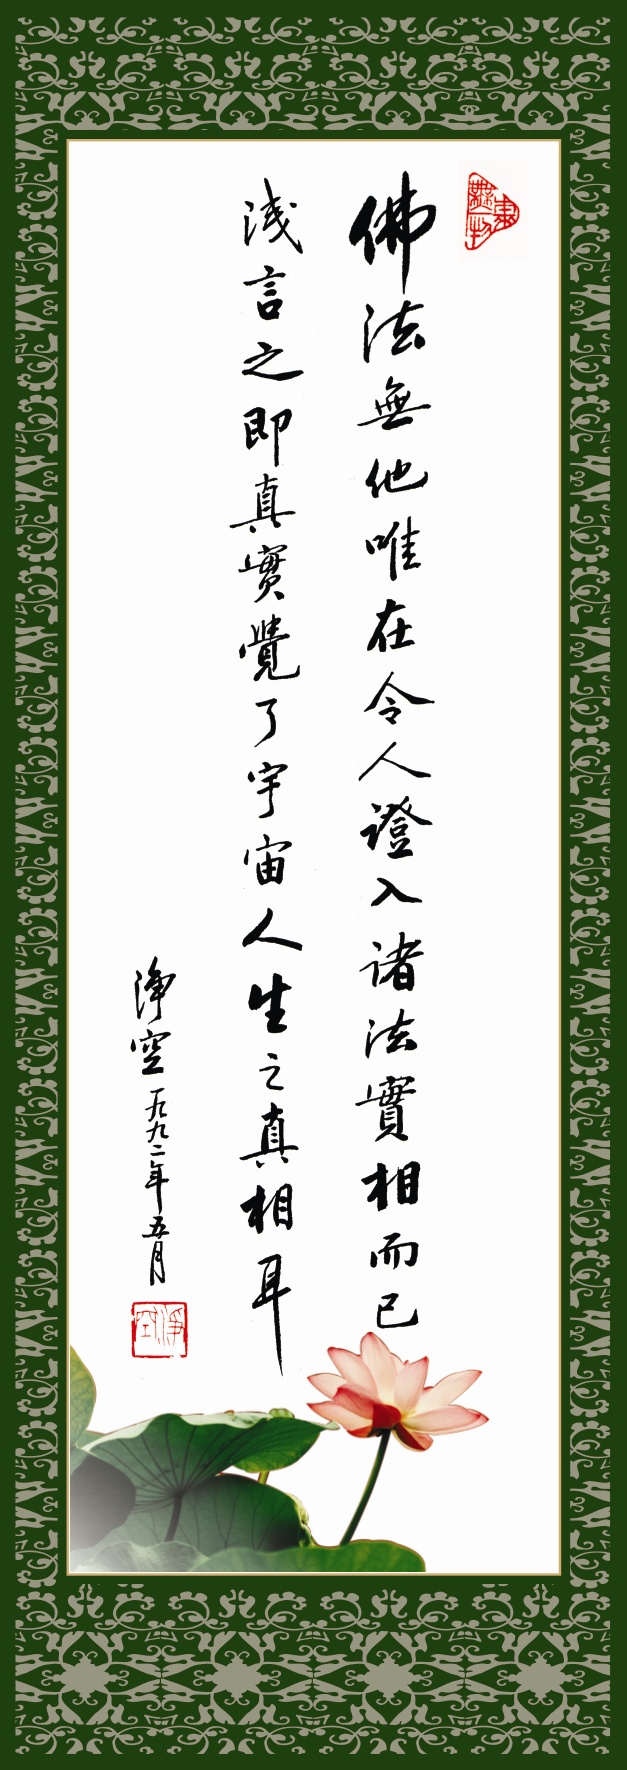 佛法無他唯在令人證入諸法實相而已
淺言之即真實覺了宇宙人生之真相耳
淨空一九九二年五月
淨空